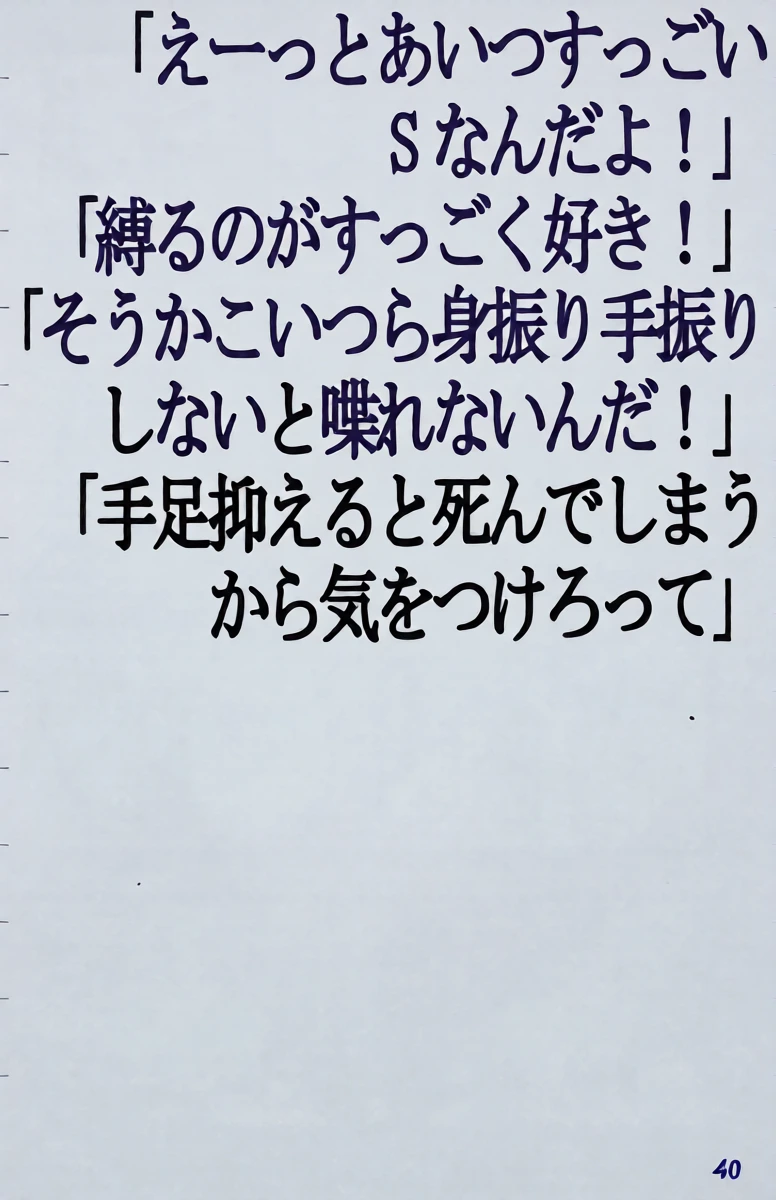 「えーっとあいつすっごい
Sなんだよ！」
「縛るのがすっごく好き！」
「そうかこいつら身振り手振り
しないと喋れないんだ！」
「手足抑えると死んでしまう
から気をつけろって」
40